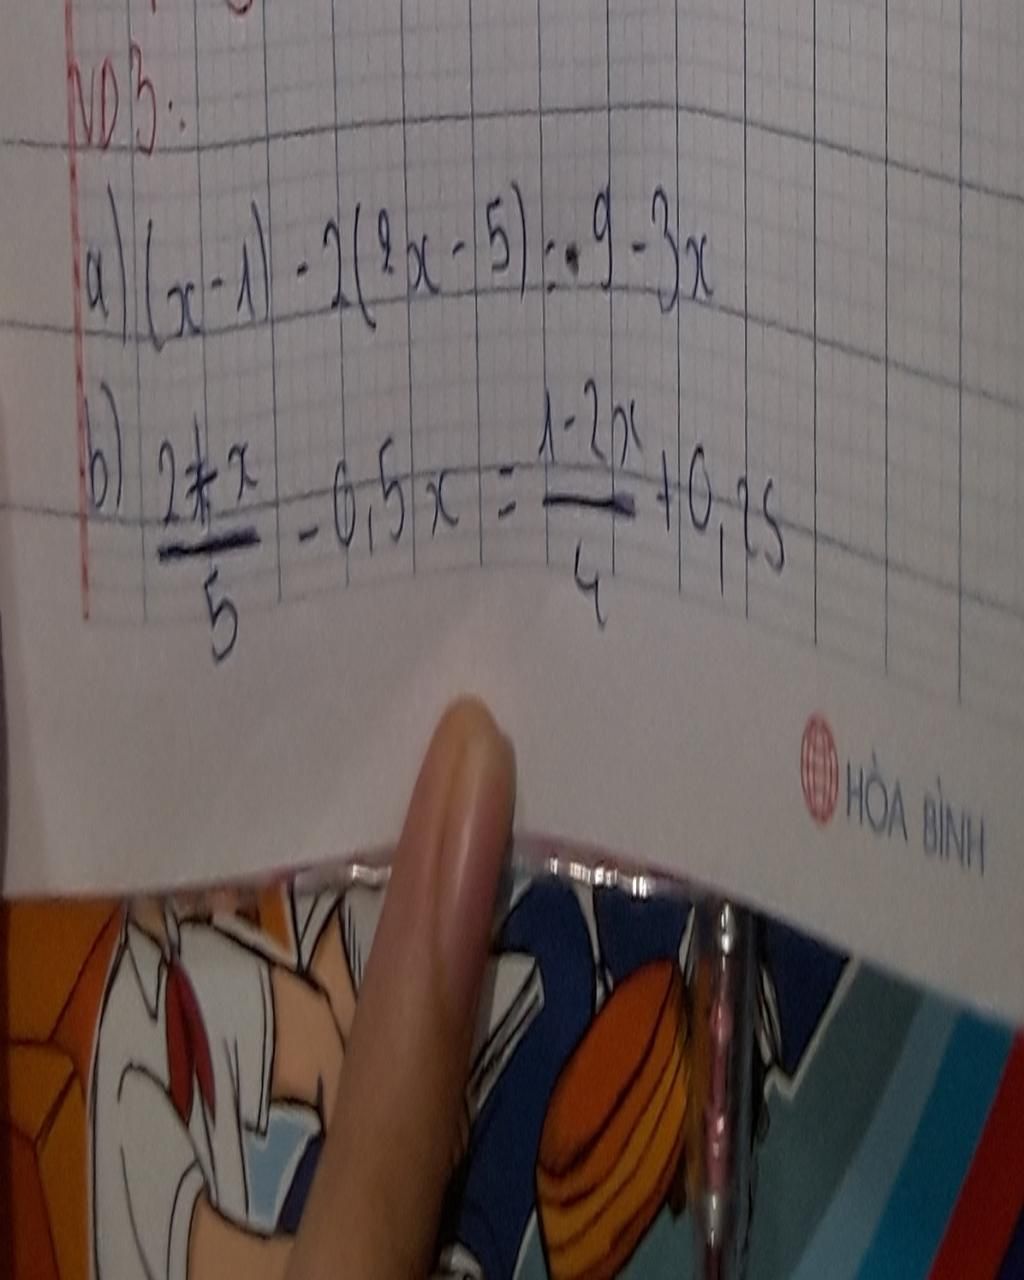 VD 3:
a) (x-1) - 2(2x - 5) = 9 - 3x
b) \frac{2+x}{5} - 0,5x = \frac{1-2x}{4} + 0,25
HÒA BÌNH